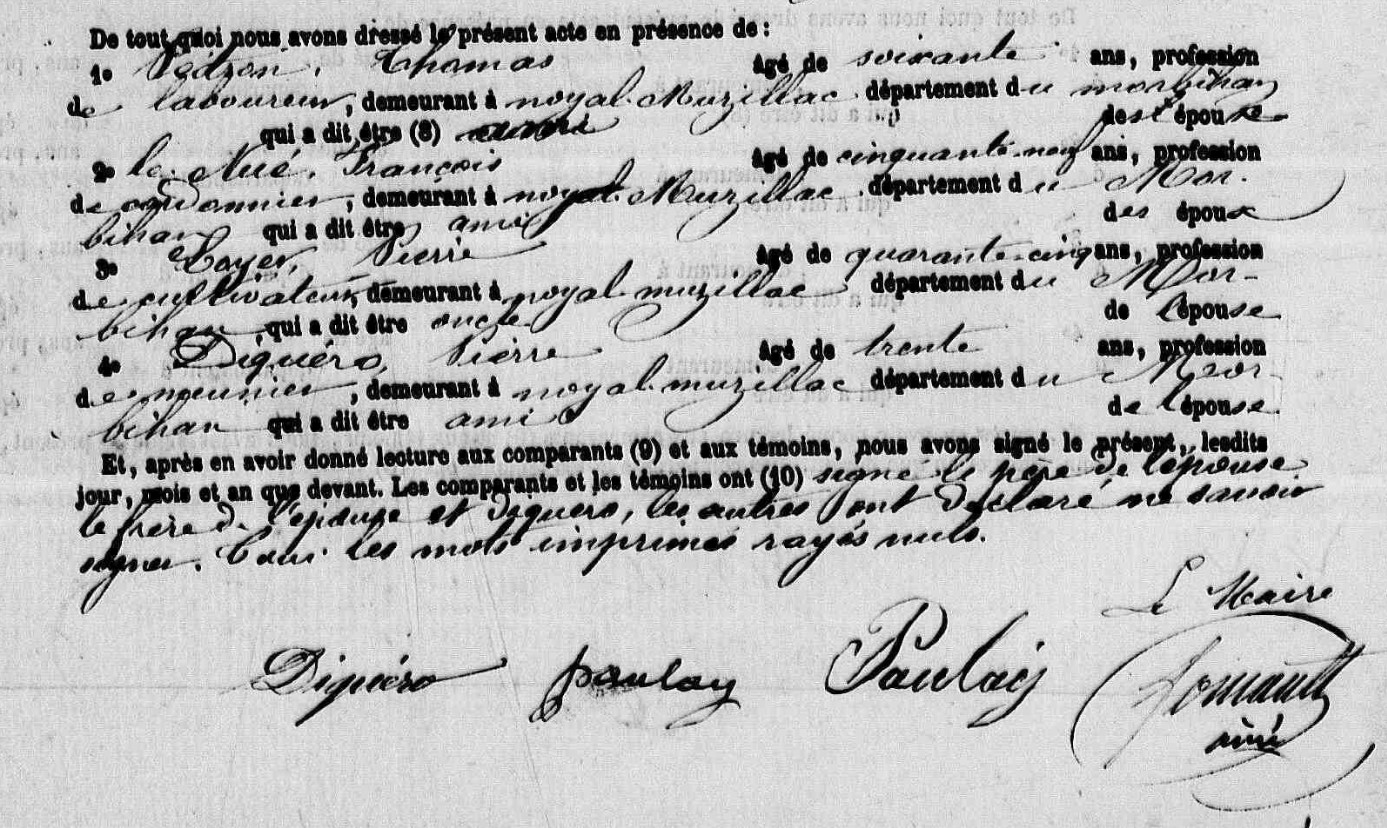 De tout quoi nous avons dressé le présent acte en présence de :
1o Thomas âgé de soixante ans, profession
de laboureur, demeurant à noyal-Muzillac département du morbihan
qui a dit être (8) des épouse
2o le Nué, François âgé de cinquante-neuf ans, profession
de cordonnier, demeurant à noyal-Muzillac département du Mor-
bihan qui a dit être ami des époux
3o Loyer, Pierre âgé de quarante-cinq ans, profession
de cultivateur, demeurant à noyal-muzillac département du Mor-
bihan, qui a dit être oncle de l'épouse
4o Diquéro, Pierre âgé de trente ans, profession
de meunier, demeurant à noyal-muzillac département du Mor-
bihan qui a dit être ami de l'épouse
Et, après en avoir donné lecture aux comparants (9) et aux témoins, nous avons signé le présent, lesdits
jour, mois et an que devant. Les comparants et les témoins ont (10) signé le père de l'épouse
le frère de l'épouse et Diquero, les autres ont déclaré ne savoir
signer. les mots imprimés rayés nuls.
Le Maire
Diquéro paulay Paulay